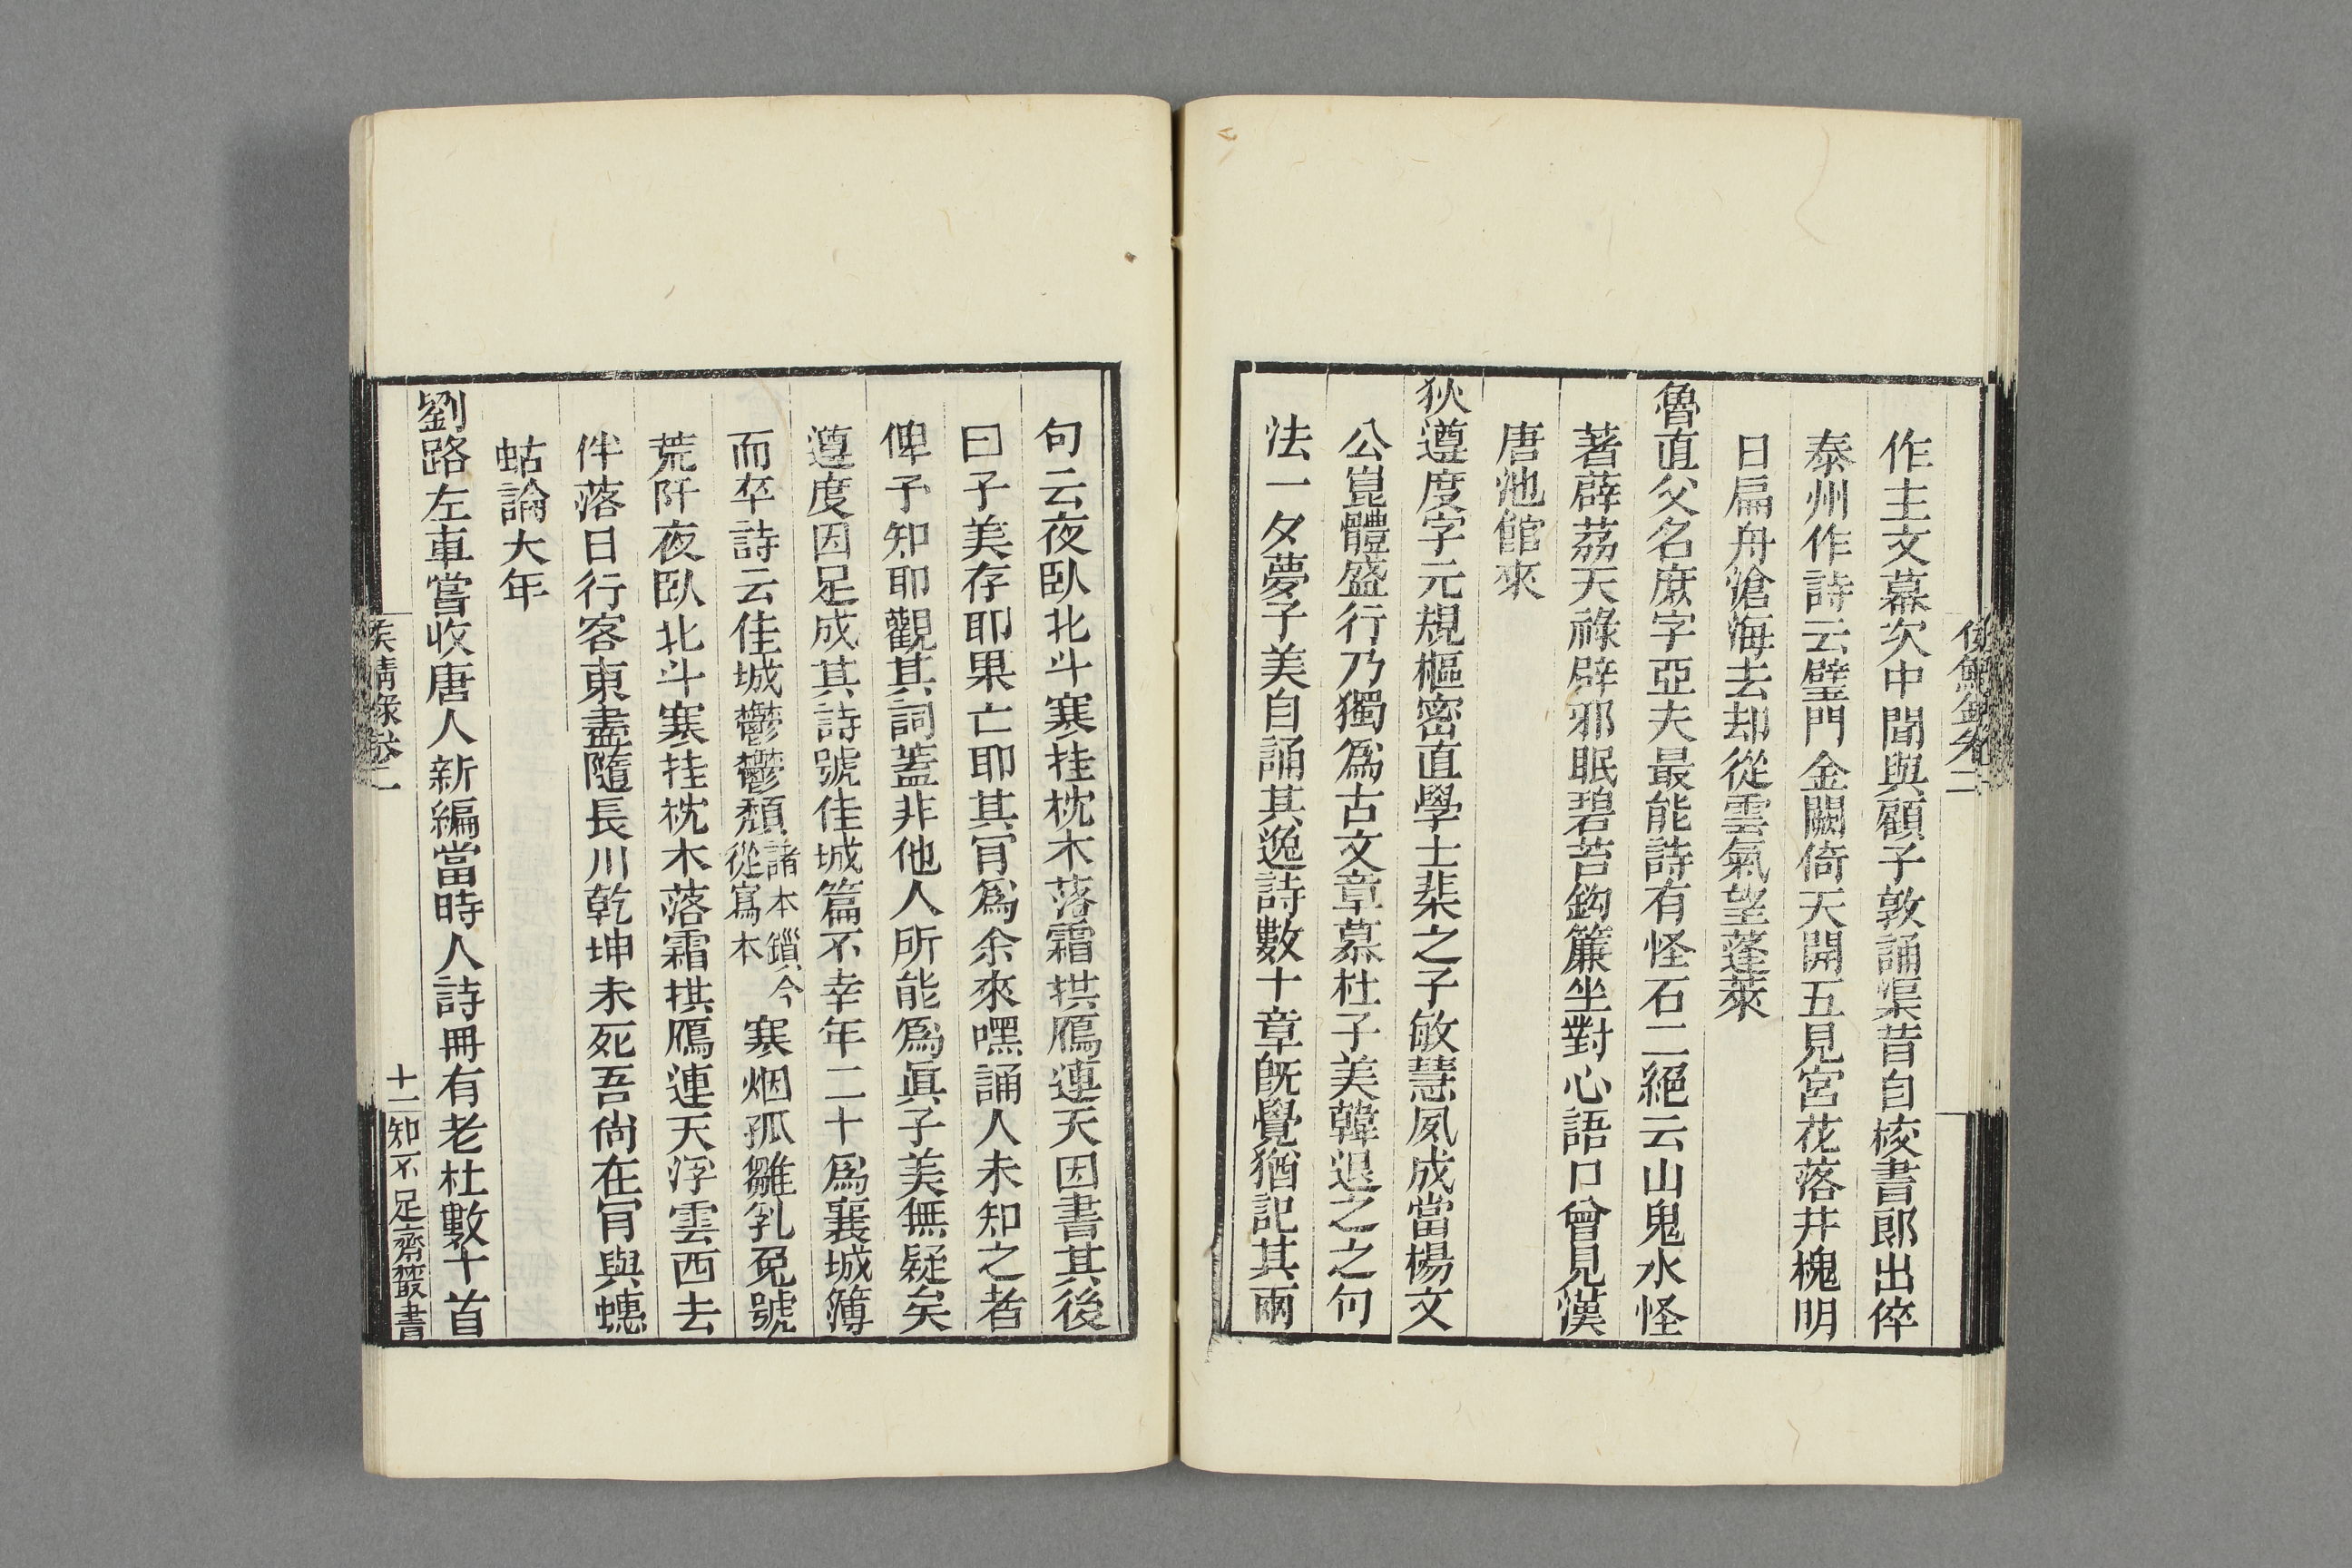 侯鯖錄卷二
作主文幕次中聞與顧子敦誦渠昔自校書郎出倅
泰州作詩云璧門金闕倚天開五見宮花落井槐明
日扁舟滄海去却從雲氣望蓬萊
魯直父名庶字亞夫最能詩有怪石二絕云山鬼水怪
著薜荔天祿辟邪眠碧苔鈎簾坐對心語口曾見漢
唐池館來
狄遵度字元規樞密直學士棐之子敏慧夙成當楊文
公崑體盛行乃獨爲古文章慕杜子美韓退之之句
法一夕夢子美自誦其逸詩數十章旣覺猶記其兩
句云夜臥北斗寒挂枕木落霜拱鴈連天因書其後
曰子美存耶果亡耶其肎爲余來嘿誦人未知之者
俾予知耶觀其詞蓋非他人所能爲眞子美無疑矣
遵度因足成其詩號佳城篇不幸年二十爲襄城簿
而卒詩云佳城鬱鬱頹諸本鎻今從寫本寒烟孤雛乳兔號
荒阡夜臥北斗寒挂枕木落霜拱鴈連天浮雲西去
伴落日行客東盡隨長川乾坤未死吾尙在肎與蟪
蛄論大年
劉路左車嘗收唐人新編當時人詩冊有老杜數十首
侯鯖錄卷二
十二
知不足齋叢書